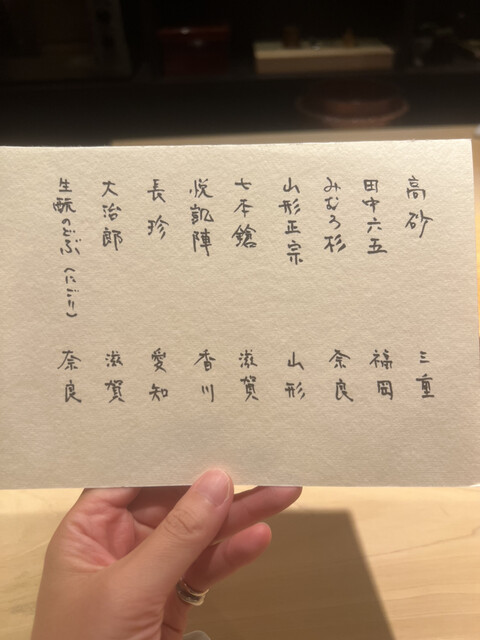 高砂 三重
田中六五 福岡
みむろ杉 奈良
山形正宗 山形
七本鎗 滋賀
悦凱陣 香川
長珍 愛知
大治郎 滋賀
生酛のどぶ(にごり) 奈良